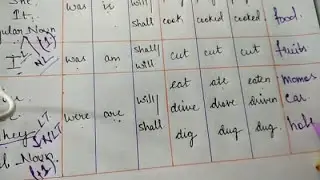 She
It. was is will/ shall cook cooked cooked food.
Noun (1)
I was am shall/ will cut cut cut fruits
eat ate eaten Momos
were are will/ shall drive drove driven car
They dig dug dug. hole
Noun.